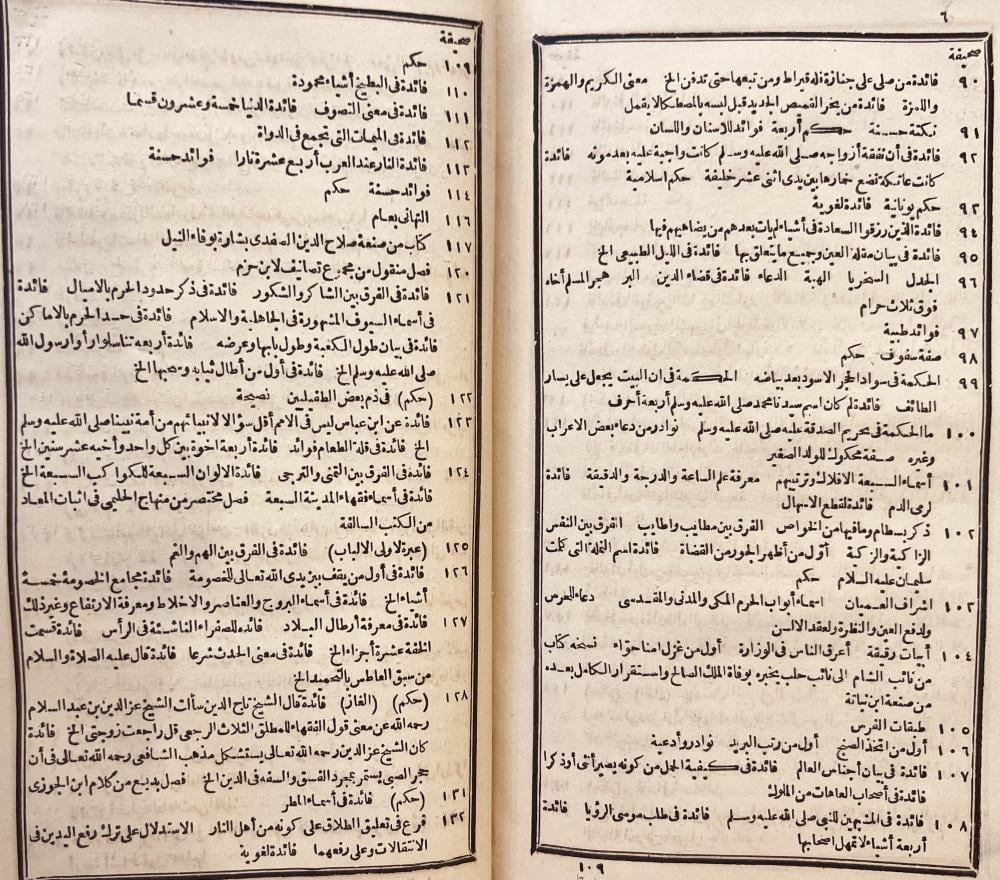 ٦
صحيفة
٩٠ فائدة من صلى على جنازة فله قيراط ومن تبعها حتى تدفن الخ معنى الكريم والهمزة
واللمزة فائدة من بخر القميص الجديد قبل لبسه بالمصطكا لا يقمل
٩١ نكتة حسنة حكم أربعة فوائد للاسنان واللسان
٩٢ فائدة فى أن نفقة أزواجه صلى الله عليه وسلم كانت واجبة عليه بعد موته فائدة
كانت عاتكة تضع خمارها بين يدى اثنى عشر خليفة حكم اسلامية
٩٣ حكم يونانية فائدة لغوية
٩٤ فائدة الذين رزقوا السعادة فى أشياء لم يأت بعدهم من يضاهيهم فيها
٩٥ فائدة فى بيان مقلة العين وجميع ما يتعلق بها فائدة فى الليل الطبيعى الخ
٩٦ الجدل السخريا الهبة الدعاء فائدة فى قضاء الدين البر هجر المسلم أخاه
فوق ثلاث حرام
٩٧ فوائد طبية
٩٨ صفة سفوف حكم
٩٩ الحكمة فى سواد الحجر الاسود بعد بياضه الحكمة فى ان البيت يجعل على يسار
الطائف فائدة لم كان اسم سيدنا محمد صلى الله عليه وسلم أربعة أحرف
١٠٠ ما الحكمة فى تحريم الصدقة عليه صلى الله عليه وسلم نوادر من دعاء بعض الاعراب
وغيره صفة محكوك للولد الصغير
١٠١ أسماء السبعة الافلاك وترتيبهم معرفة علم الساعة والدرجة والدقيقة فائدة
لرمى الدم فائدة لقطع الاسهال
١٠٢ ذكر بسطام وما فيها من الخواص الفرق بين مطايب وأطايب الفرق بين النفس
الزاكية والزكية أول من أظهر الجور من القضاة فائدة اسم النملة التى كلمت
سليمان عليه السلام حكم
١٠٣ اشراف العميان اسماء أبواب الحرم المكى والمدنى والمقدسى دعاء للحرس
ولدفع العين والنظرة ولعقد الالسن
١٠٤ أبيات رقيقة أعرق الناس فى الوزارة أول من غزل امنا حواء نسخة كتاب
من نائب الشام الى نائب حلب يخبره بوفاة الملك الصالح واستقرار الكامل بعده
من صنعة ابن نباتة
١٠٥ طبقات الفرس
١٠٦ أول من اتخذ الصنج أول من رتب البريد نوادر وأدعية
١٠٧ فائدة فى بيان أجناس العالم فائدة فى كيفية الحمل من كونه يصير أنثى أو ذكرا
فائدة فى أصحاب العاهات من الملوك
١٠٨ فائدة فى المشبهين للنبى صلى الله عليه وسلم فائدة فى طلب موسى الرؤيا فائدة
أربعة أشياء لا تمهل أصحابها
١٠٩
صحيفة
١٠٩ حكم
١١٠ فائدة فى البطيخ أشياء محمودة
١١١ فائدة فى معنى التصوف فائدة الدنيا خمسة وعشرون قسما
١١٢ فائدة فى الميمات التى تجمع فى الدواة
١١٣ فائدة النار عند العرب أربع عشرة نارا فوائد حسنة
١١٤ فوائد حسنة حكم
١١٦ التهانى بعام
١١٧ كتاب من صنعة صلاح الدين الصفدى بشارة بوفاء النيل
١٢٠ فصل منقول من مجموع تصانيف لابن حزم
١٢١ فائدة فى الفرق بين الشاكر والشكور فائدة فى ذكر حدود الحرم بالاميال فائدة
فى أسماء السيوف المشهورة فى الجاهلية والاسلام فائدة فى حد الحرم بالاماكن
فائدة فى بيان طول الكعبة وطول بابها وعرضه فائدة أربعة تناسلوا رأوا رسول الله
صلى الله عليه وسلم الخ فائدة فى أول من أطال ثيابه وسحبها الخ
١٢٢ (حكم) فى ذم بعض الطفيليين نصيحة
١٢٣ فائدة عن ابن عباس ليس فى الامم أقل سؤالا لانبيائهم من أمة نبينا صلى الله عليه وسلم
الخ فائدة فى قلة الطعام فوائد فائدة أربعة اخوة بين كل واحد وأخيه عشر سنين الخ
١٢٤ فائدة فى الفرق بين التمنى والترجى فائدة الالوان السبعة للكواكب السبعة الخ
فائدة فى أسماء فقهاء المدينة السبعة فصل مختصر من منهاج الحليمى فى اثبات المعاد
من الكتب السالفة
١٢٥ (عبرة لاولى الالباب) فائدة فى الفرق بين الهم والغم
١٢٦ فائدة فى أول من يقف بين يدى الله تعالى للخصومة فائدة مجامع الخصومة خمسة
أشياء الخ فائدة فى أسماء البروج والعناصر والاخلاط ومعرفة الارتفاع وغير ذلك
١٢٧ فائدة فى معرفة أرطال البلاد فائدة للصفراء الناشئة فى الرأس فائدة قسمت
الخلفة عشرة أجزاء الخ فائدة فى معنى الحدث شرعا فائدة قال عليه الصلاة والسلام
من سبق العاطس بالتحميد الخ
١٢٨ (حكم) (الغاز) فائدة قال الشيخ تاج الدين سألت الشيخ عز الدين بن عبد السلام
رحمه الله عن معنى قول الفقهاء للمطلق الثلاث الرجعى قل راجعت زوجتى الخ فائدة
كان الشيخ عز الدين رحمه الله تعالى يستشكل مذهب الشافعى رحمه الله تعالى فى أن
حجر الصبى يستمر بمجرد الفسق والسفه فى الدين الخ فصل بديع من كلام ابن الجوزى
١٣١ (حكم) فائدة فى أسماء المطر
١٣٢ فرع فى تعليق الطلاق على كونه من أهل النار الاستدلال على ترك رفع اليدين فى
الانتقالات وعلى رفعهما فائدة لغوية